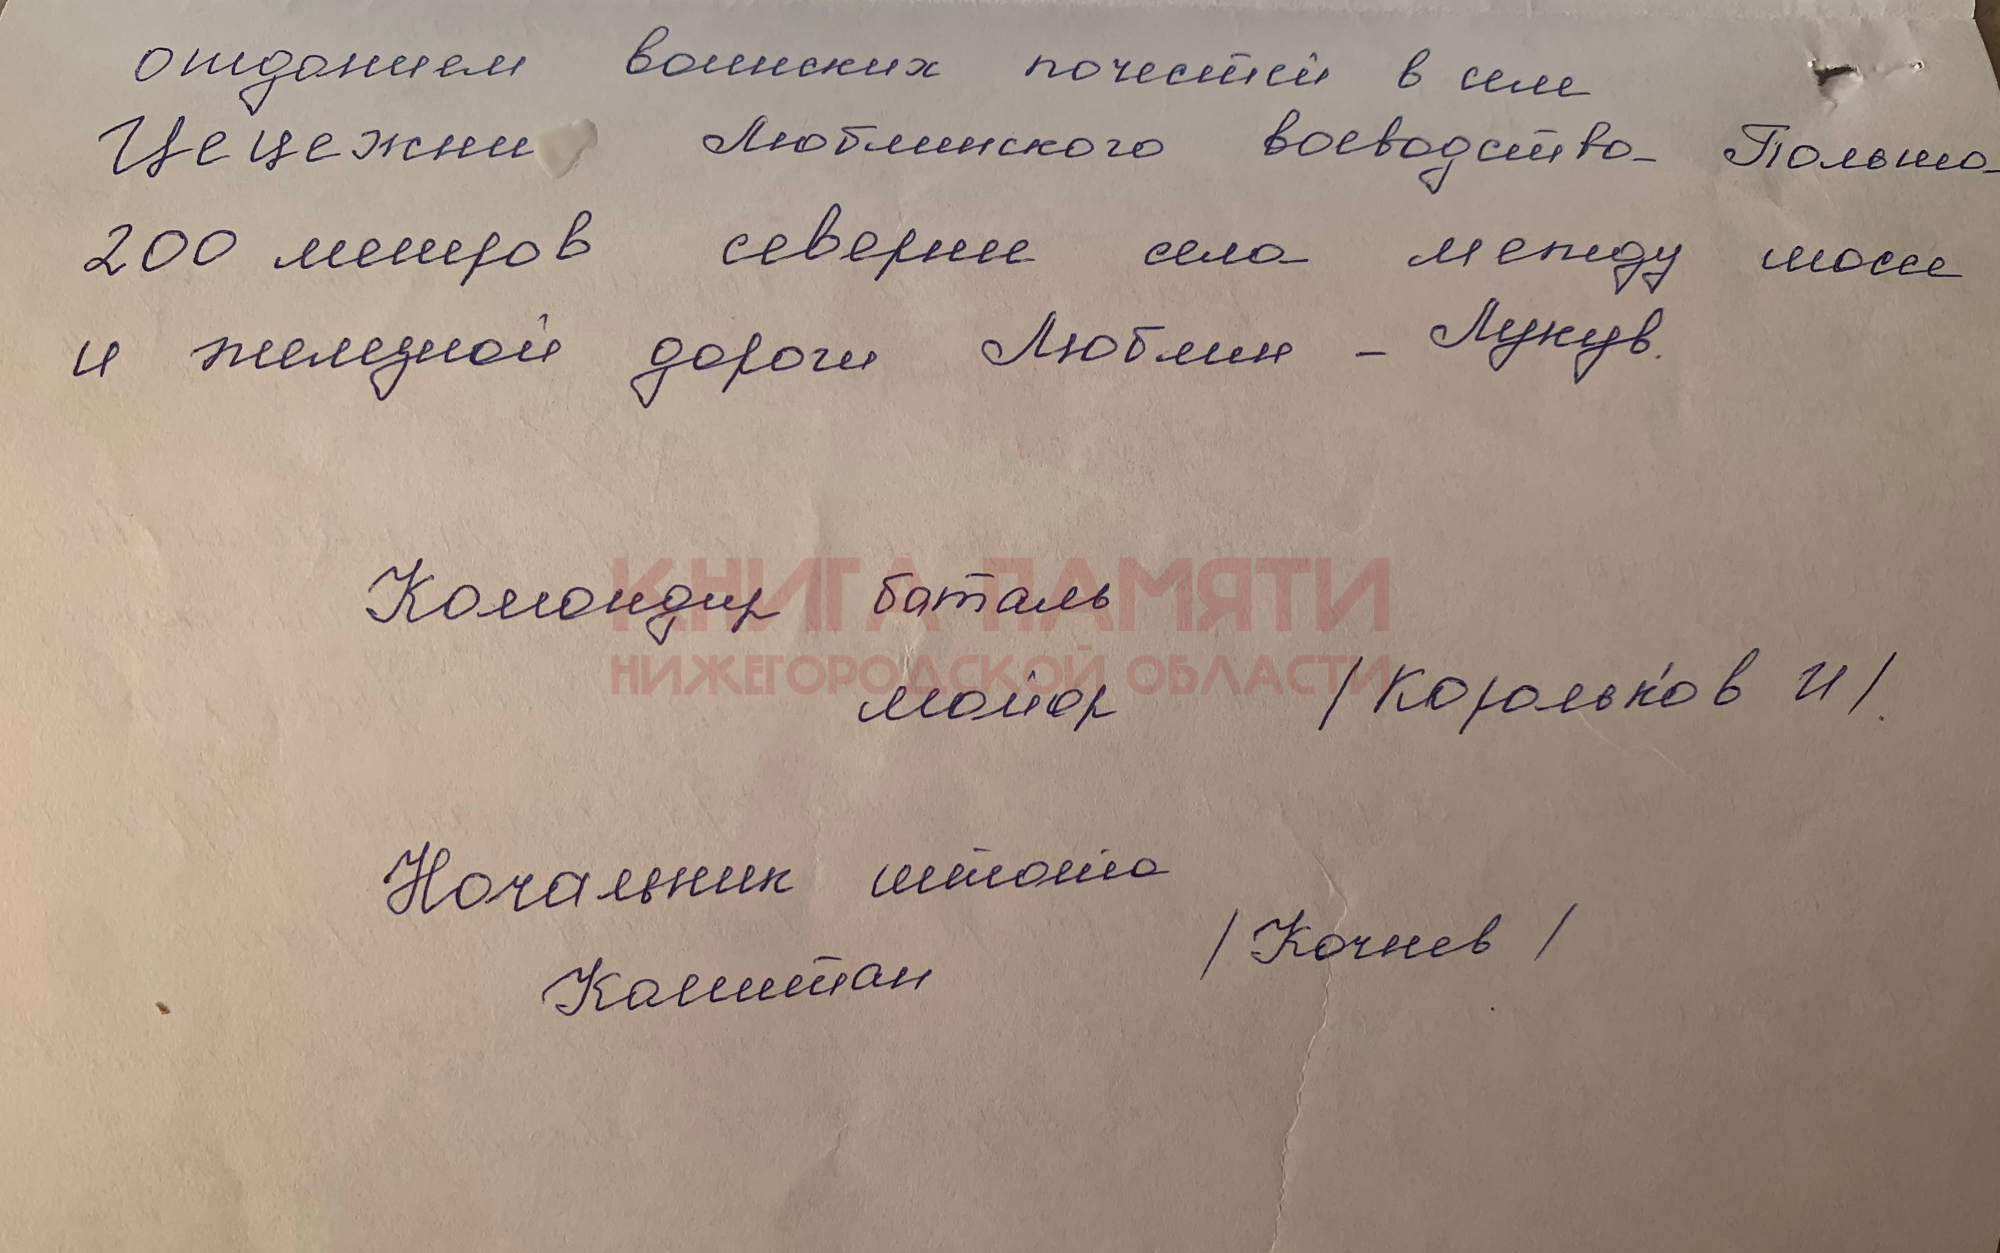 отданием воинских почестей в селе
Цецежин Люблинского воеводства Польша
200 метров севернее села между шоссе
и железной дороги Люблин - Лукув.
КНИГА ПАМЯТИ
НИЖЕГОРОДСКОЙ ОБЛАСТИ
Командир баталь
майор /Корольков И/.
Начальник штаба
Капитан /Кочнев/